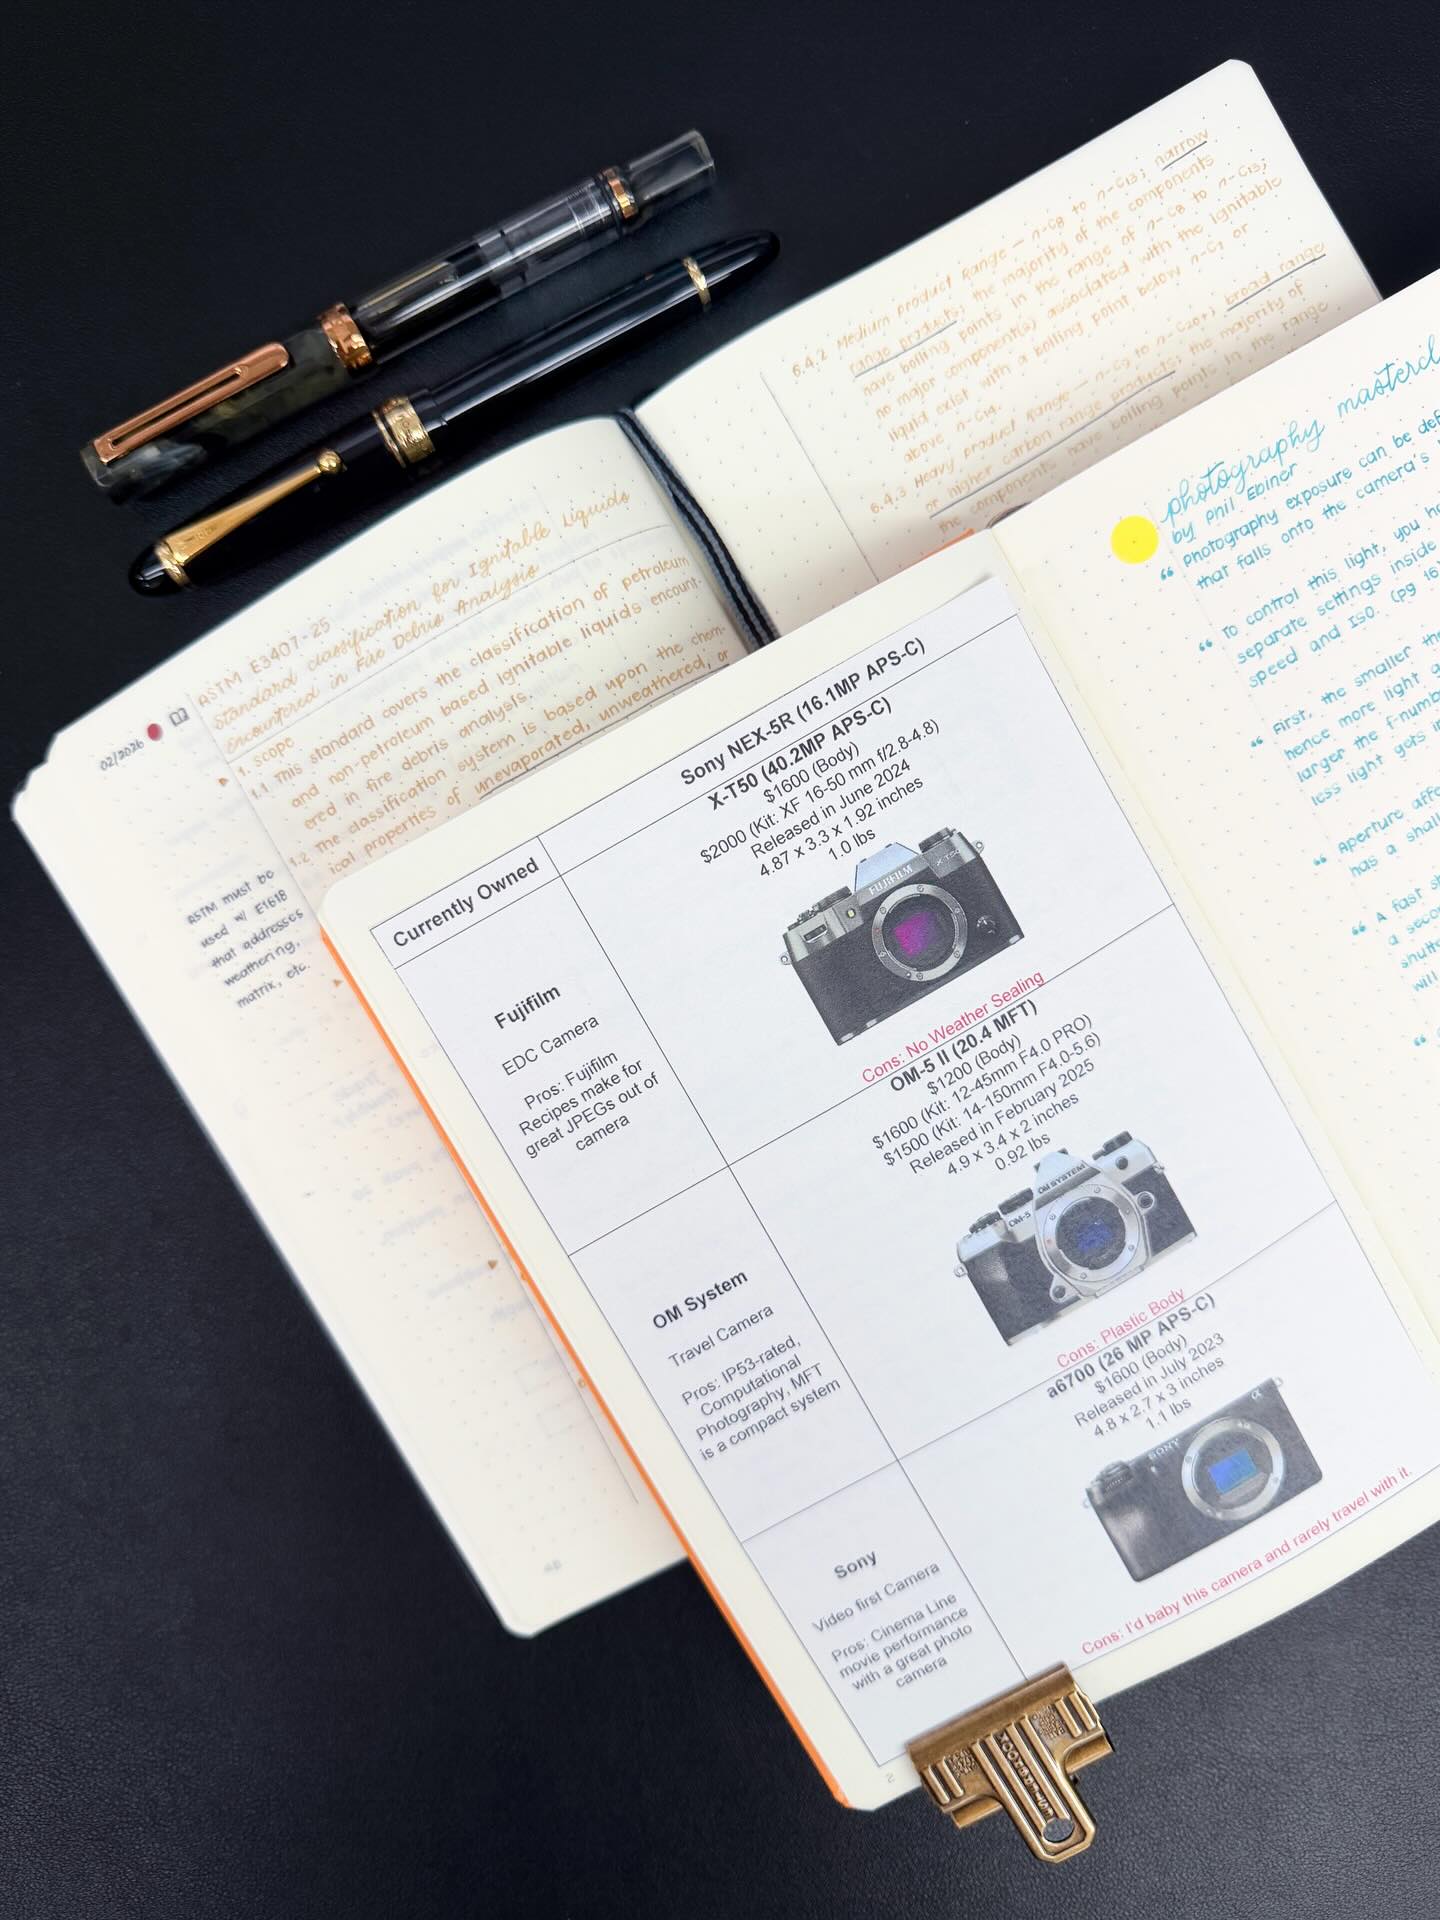 6.4.2 Medium Product Range — n-C8 to n-C13; narrow
range products; the majority of the components
have boiling points in the range of n-C8 to n-C13;
no major component(s) associated with the ignitable
liquid exist with a boiling point below n-C7 or
above n-C14.
6.4.3 Heavy Product Range — n-C9 to n-C20+; broad range
or higher carbon range products; the majority of
the components have boiling points in the range
02/2026
ASTM E3407-25
Standard Classification for Ignitable Liquids
Encountered in Fire Debris Analysis
1. Scope
1.1 This standard covers the classification of petroleum
and non-petroleum based ignitable liquids encount-
ered in fire debris analysis.
1.2 The classification system is based upon the chem-
ical properties of unevaporated, unweathered, or
ASTM must be
used w/ E1618
that addresses
weathering,
matrix, etc.
photography mastercl
by Phil Ebiner
“ Photography exposure can be def
that falls onto the camera's
“ To control this light, you
separate settings inside
speed and ISO. (pg 16)
“ First, the smaller the
hence more light
larger the f-number
less light gets
“ Aperture affe
has a shall
“ A fast sh
a secon
shutte
will
Currently Owned
Sony NEX-5R (16.1MP APS-C)
Fujifilm
EDC Camera
Pros: Fujifilm
Recipes make for
great JPEGs out of
camera
X-T50 (40.2MP APS-C)
$1600 (Body)
$2000 (Kit: XF 16-50 mm f/2.8-4.8)
Released in June 2024
4.87 x 3.3 x 1.92 inches
1.0 lbs
FUJIFILM
X-T50
Cons: No Weather Sealing
OM System
Travel Camera
Pros: IP53-rated,
Computational
Photography, MFT
is a compact system
OM-5 II (20.4 MFT)
$1200 (Body)
$1600 (Kit: 12-45mm F4.0 PRO)
$1500 (Kit: 14-150mm F4.0-5.6)
Released in February 2025
4.9 x 3.4 x 2 inches
0.92 lbs
OM SYSTEM
OM-5
Cons: Plastic Body
Sony
Video first Camera
Pros: Cinema Line
movie performance
with a great photo
camera
a6700 (26 MP APS-C)
$1600 (Body)
Released in July 2023
4.8 x 2.7 x 3 inches
1.1 lbs
SONY
α
Cons: I'd baby this camera and rarely travel with it.
2